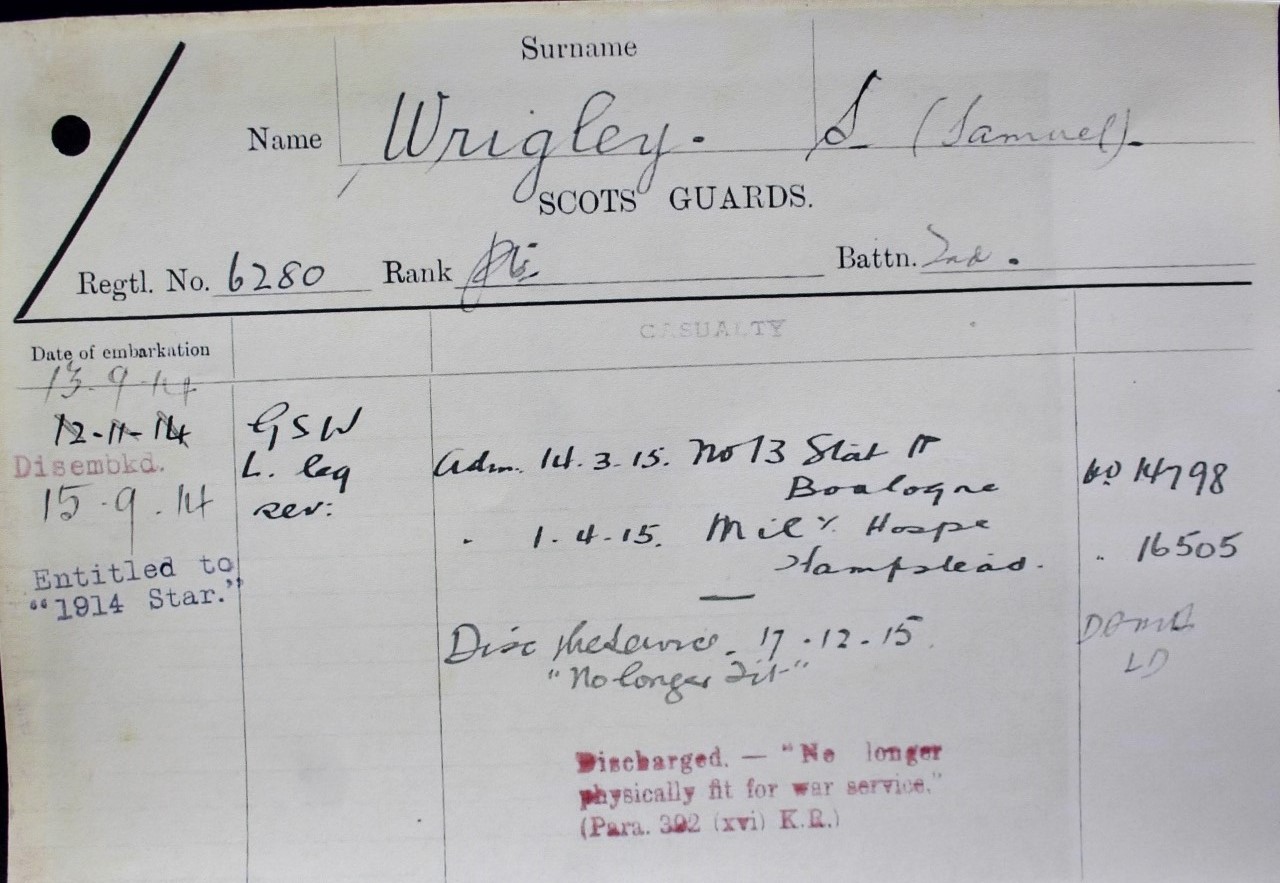 Surname
Name Wrigley. S (Samuel).
SCOTS GUARDS.
Regtl. No. 6280 Rank Pte. Battn. 2nd.
CASUALTY
Date of embarkation
13-9-14
12-11-14 GSW
Disembkd. L. leg Adm. 14.3.15. No 13 Stat H
15.9.14 sev: Boulogne 14798
" 1.4.15. Mily. Hospe
Hampstead. " 16505
Entitled to
"1914 Star."
Disc the Service. 17.12.15.
"No longer Fit"
LD
Discharged. — "No longer
physically fit for war service."
(Para. 392 (xvi) K.R.)